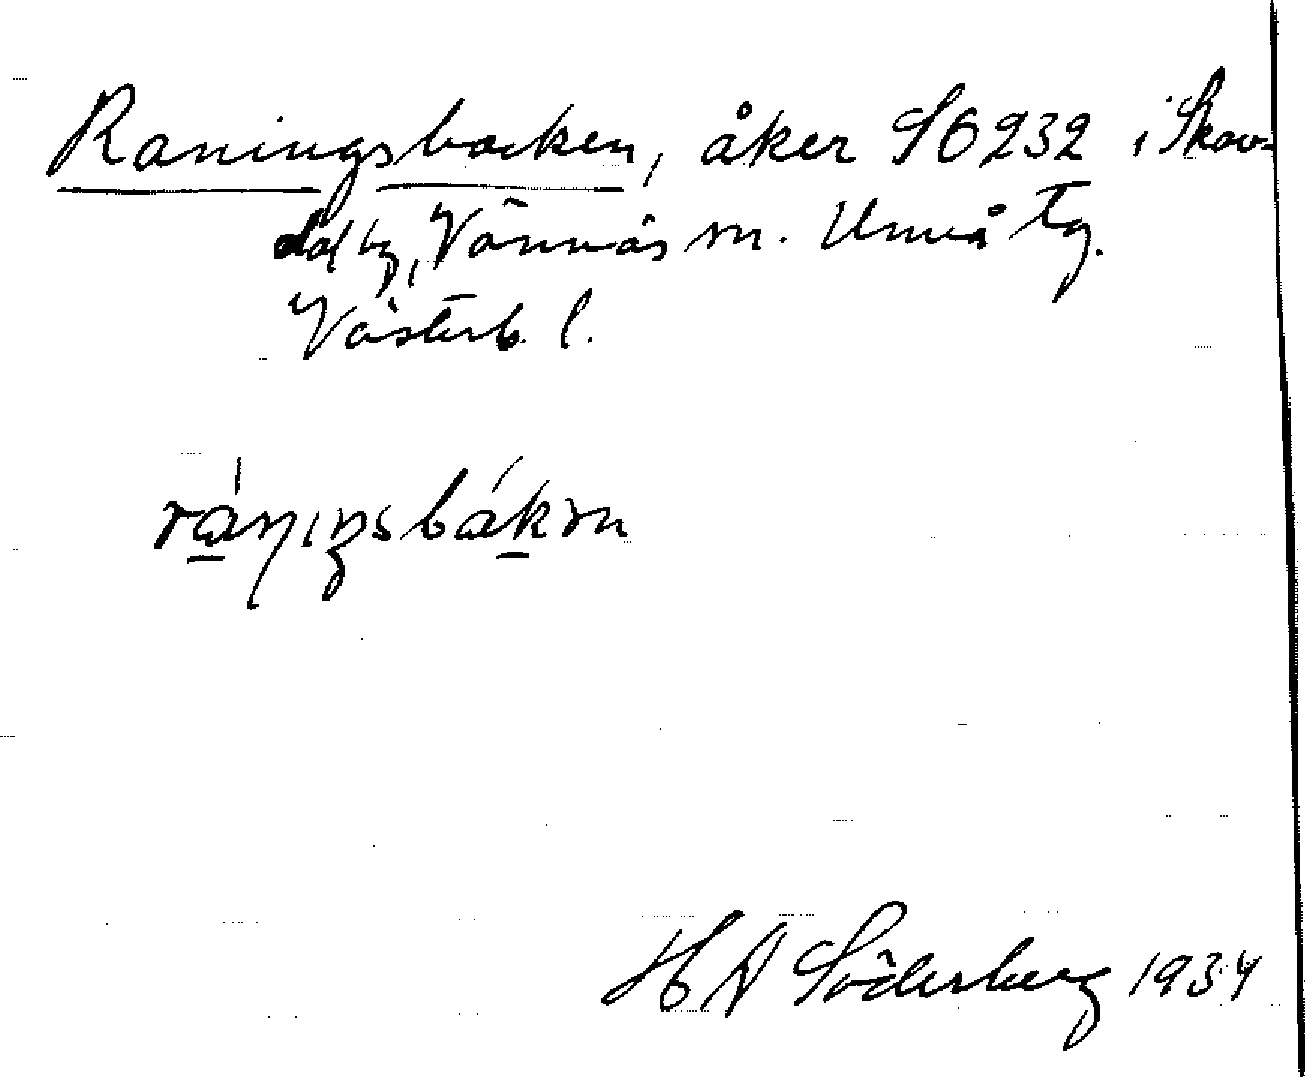 Raningsbacken, åker S6232 i Skav-
dal by, Vännäs sn. Umeå tg.
Västerb. l.
ráningsbákən
H A Söderberg 1934